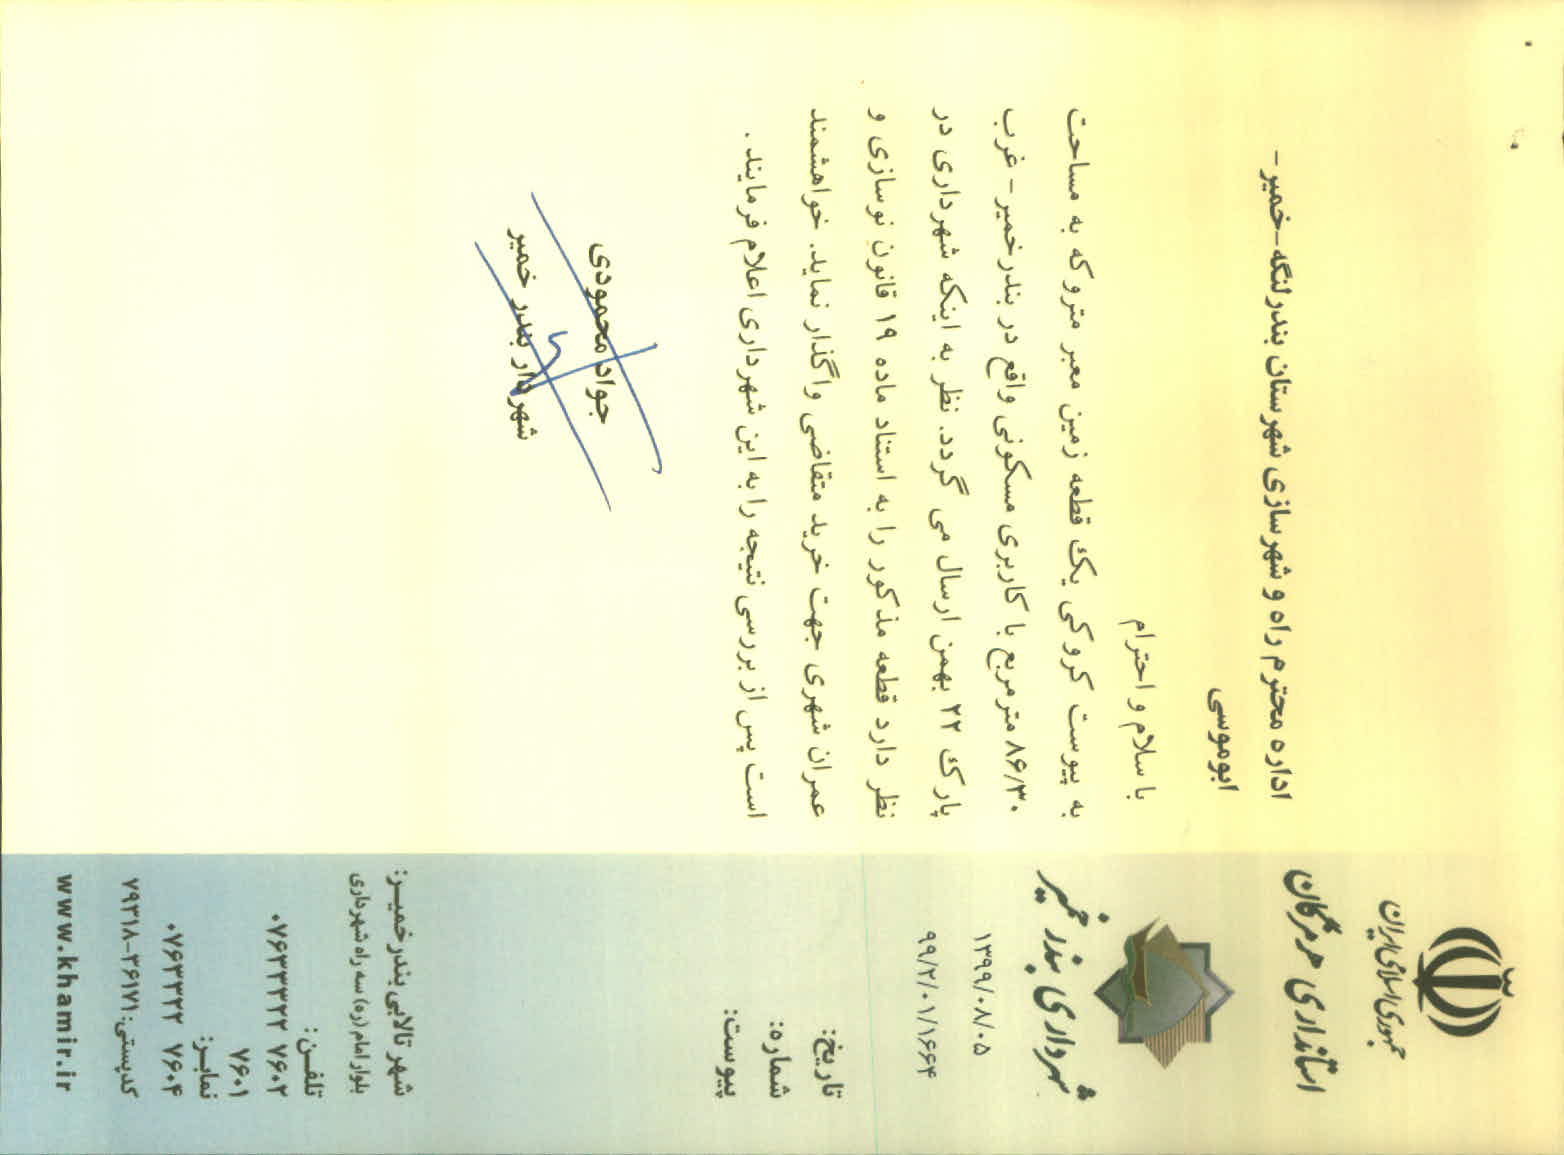 جمهوری اسلامی ایران
استانداری هرمزگان
شهرداری بندر خمیر
۱۳۹۹/۰۸/۰۵
۹۹/۲/۰۱/۱۶۶۴
تاریخ:
شماره:
پیوست:
اداره محترم راه و شهرسازی شهرستان بندرلنگه-خمیر-
ابوموسی
با سلام و احترام
به پیوست کروکی یک قطعه زمین معبر متروکه به مساحت
۸۶/۳۰ متر مربع با کاربری مسکونی واقع در بندرخمیر- غرب
پارک ۲۲ بهمن ارسال می گردد. نظر به اینکه شهرداری در
نظر دارد قطعه مذکور را به استناد ماده ۱۹ قانون نوسازی و
عمران شهری جهت خرید متقاضی واگذار نماید. خواهشمند
است پس از بررسی نتیجه را به این شهرداری اعلام فرمایند.
جواد محمودی
شهردار بندر خمیر
شهر تالابی بندرخمیـر:
بلوار امام (ره) سه راه شهرداری
تلفـن:
۰۷۶۳۳۳۲۲ ۷۶۰۲
۷۶۰۱
نمابـر:
۰۷۶۳۳۳۲۲ ۷۶۰۴
کدپستی: ۳۶۱۷۱-۷۹۳۱۸
www.khamir.ir